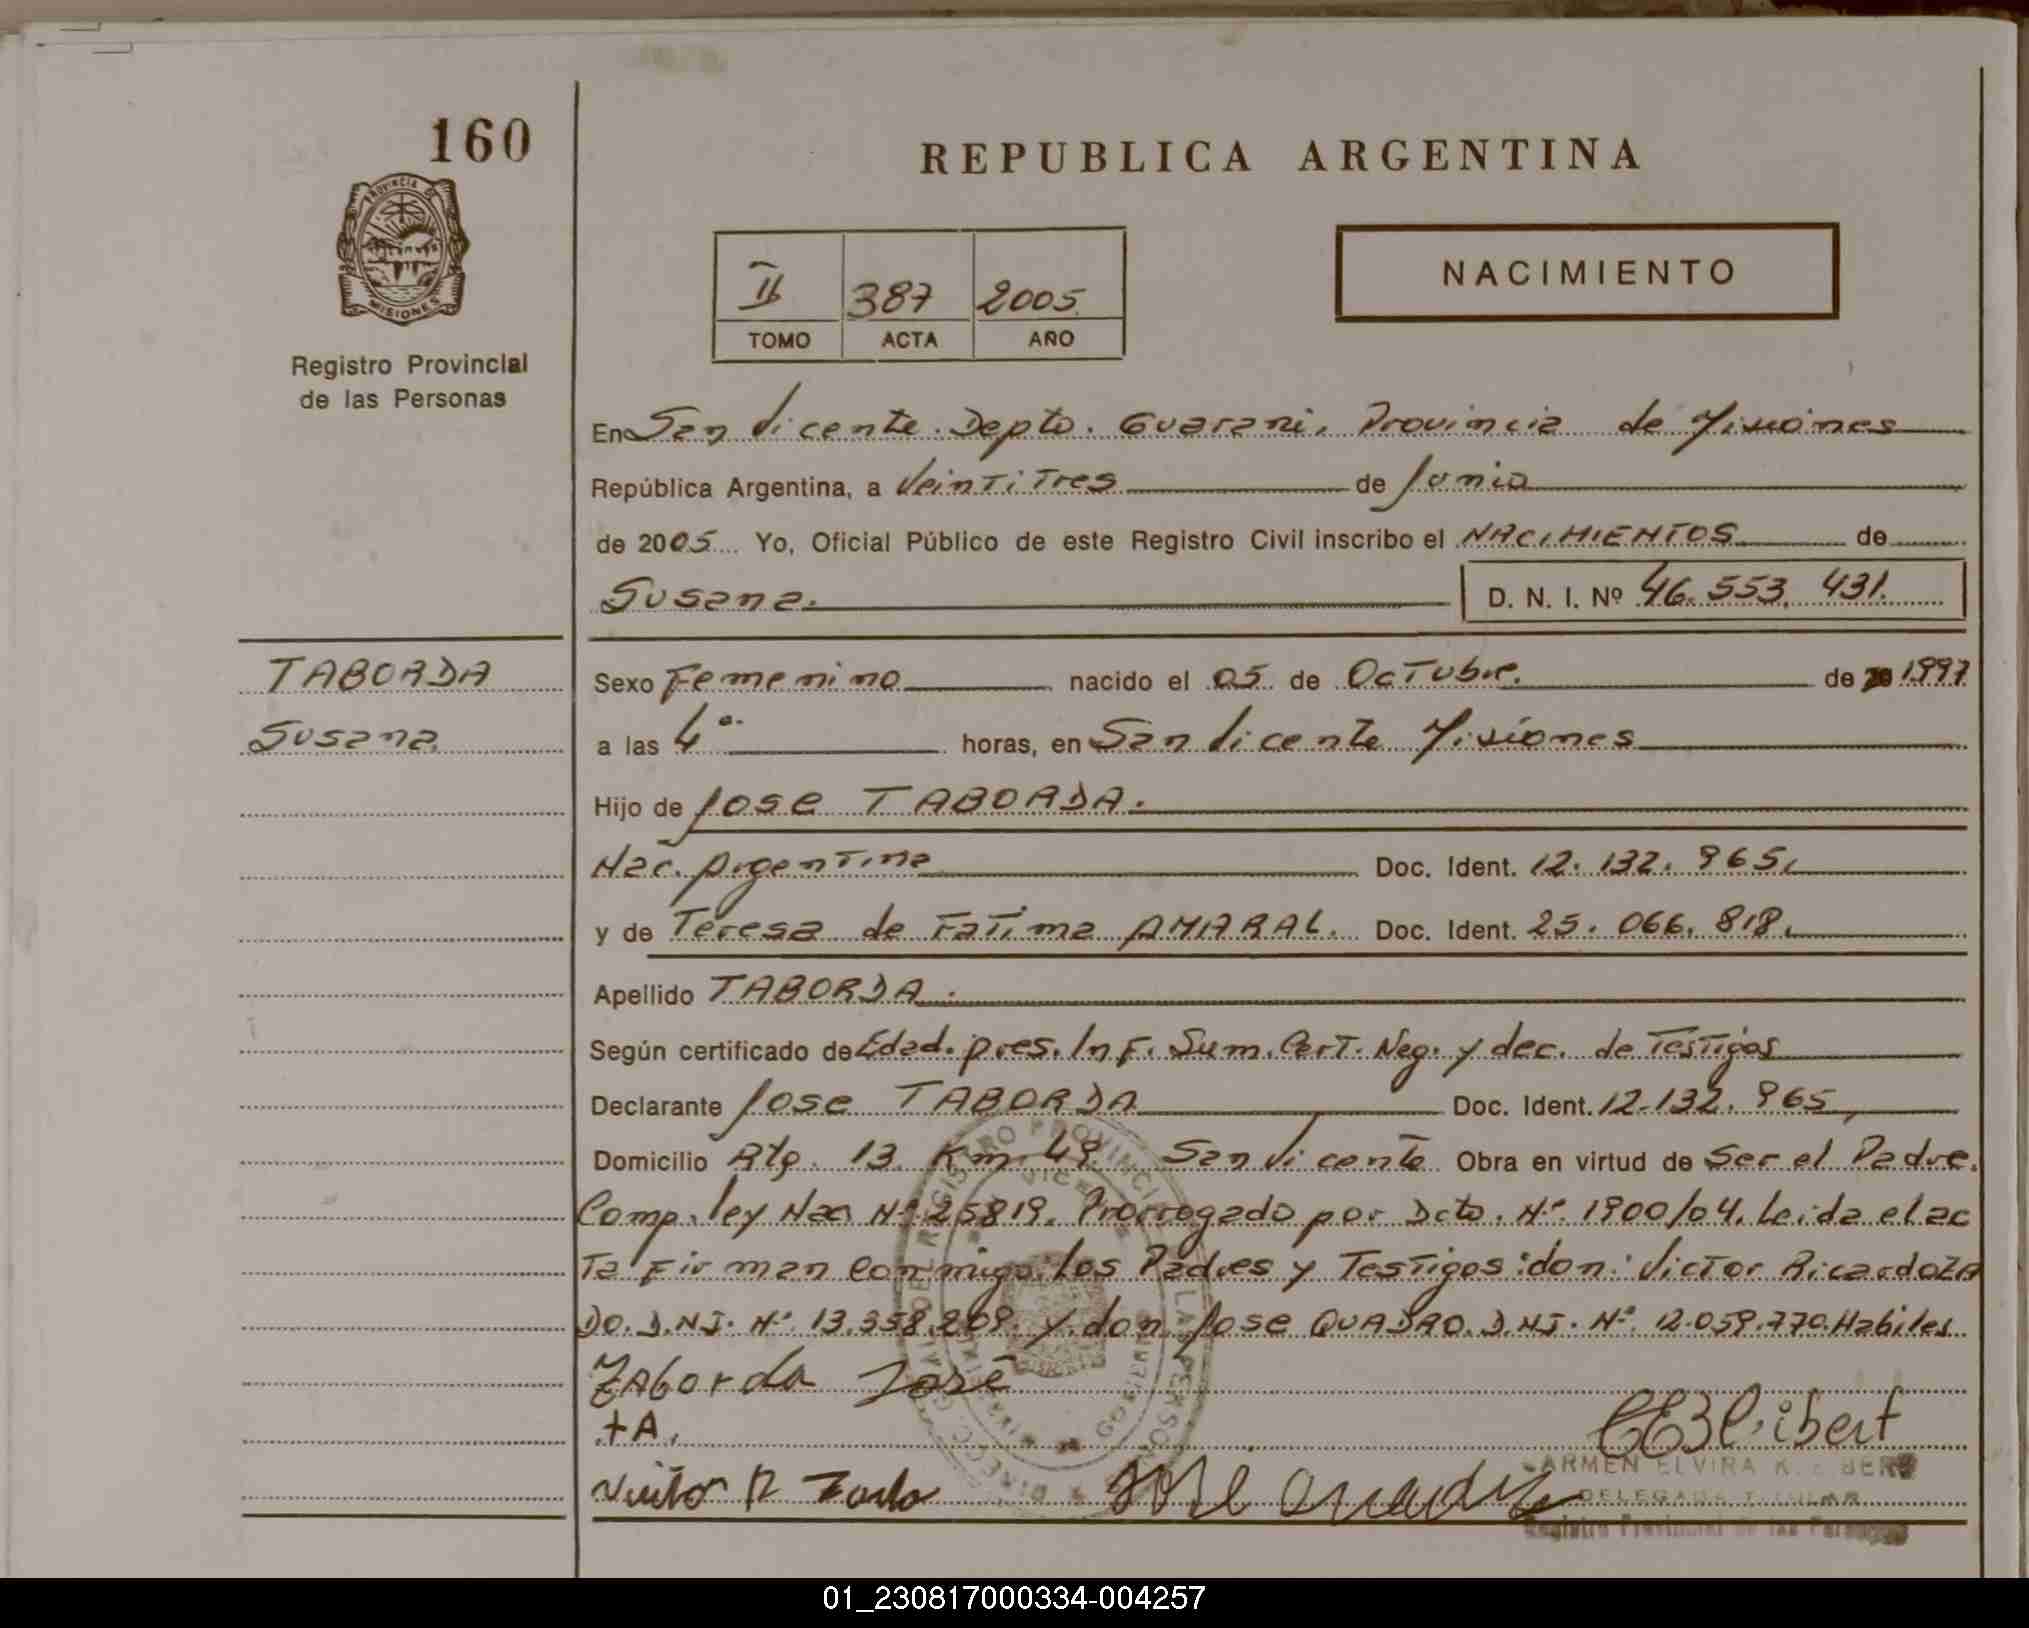 160
REPUBLICA ARGENTINA
PROVINCIA DE
MISIONES
Registro Provincial
de las Personas
II 387 2005
TOMO ACTA AÑO
NACIMIENTO
En San Vicente. Depto. Guarani, Provincia de Misiones
República Argentina, a Veintitres de Junio
de 2005 Yo, Oficial Público de este Registro Civil inscribo el NACIMIENTOS de
Susana. D. N. I. Nº 46.553.431.
TABORDA
Susana
Sexo Femenino nacido el 05 de Octubre. de 20 1997
a las 4º horas, en San Vicente Misiones
Hijo de Jose TABORDA.
Nac. Argentina Doc. Ident. 12.132.965.
y de Teresa de Fatima AMARAL. Doc. Ident. 25.066.818.
Apellido TABORDA.
Según certificado de Edad. pres. Inf. Sum. Cert. Neg. y dec. de Testigos
Declarante Jose TABORDA Doc. Ident. 12.132.965,
Domicilio Rta. 13 Km 49 San Vicente Obra en virtud de Ser el Padre.
Comp. ley Nac Nº 25819. Prorrogado por Dcto. Nº 1900/04. Leida el ac
ta Firman conmigo los Padres y Testigos: don: Victor Ricardo ZA
DO. D.N.I. Nº 13.358.209. y don Jose QUADRO. D.N.I. Nº 12.059.770. Habiles
Taborda José
+A.
CARMEN ELVIRA K.
DELEGADA TITULAR
Registro Provincial de las Personas
01_230817000334-004257